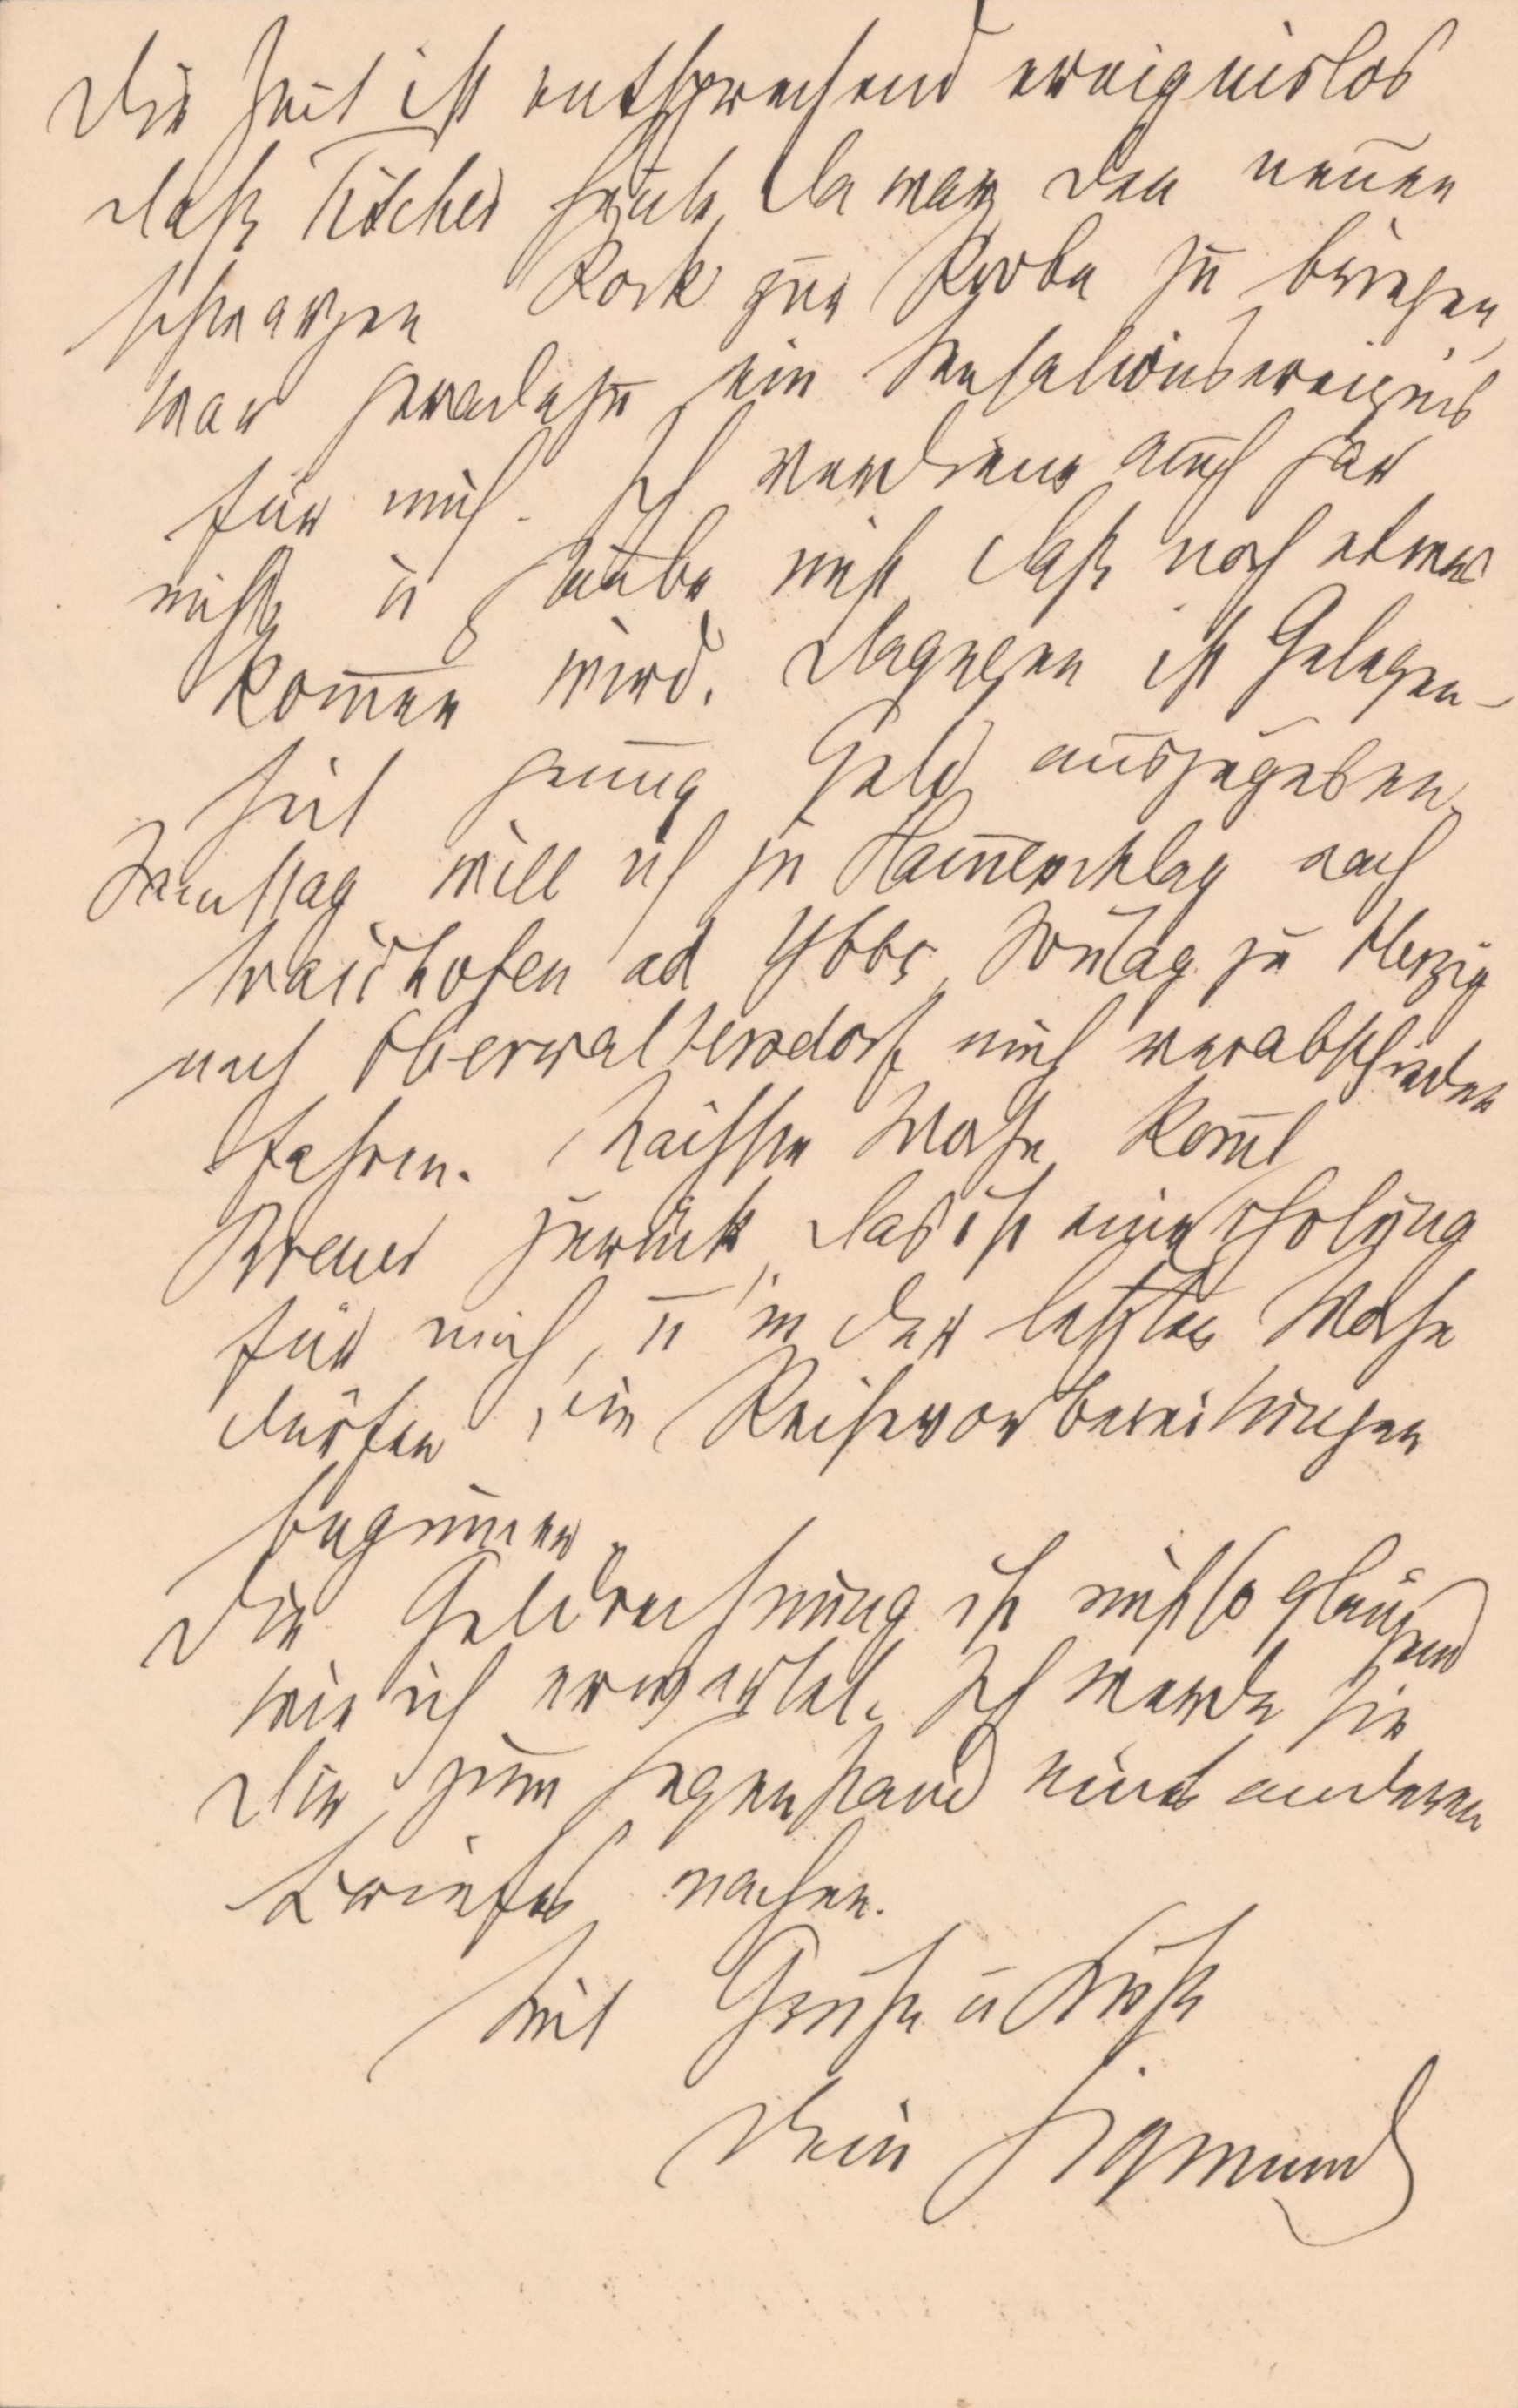 Die Zeit ist entsprechend ereignislos
daß Tischer heute da war, den neuen
schwarzen Rock zur Probe zu bringen,
war geradezu ein Sensationsereignis
für mich. Ich verdiene auch gar
nichts u glaube nicht, daß noch etwas
kom̅en wird. Dagegen ist Gelegen-
heit genug Geld auszugeben.
Samstag will ich zu Ham̅erschlag nach
Waidhofen ad Ybbs, Son̅tag zu Herzig
nach Oberwaltersdorf mich verabschieden
fahren. Nächste Woche kom̅t
Breuer zurück, das ist eine Erholung
für mich, u in der letzten Woche
dürfen die Reisevorbereitungen
begin̅en.
Die Geldrechnung ist nicht so glänzend
wie ich erwartet. Ich werde sie
Dir zum Gegenstand eines anderen
Briefes machen.
Mit Gruß u Kuß
Dein Sigmund